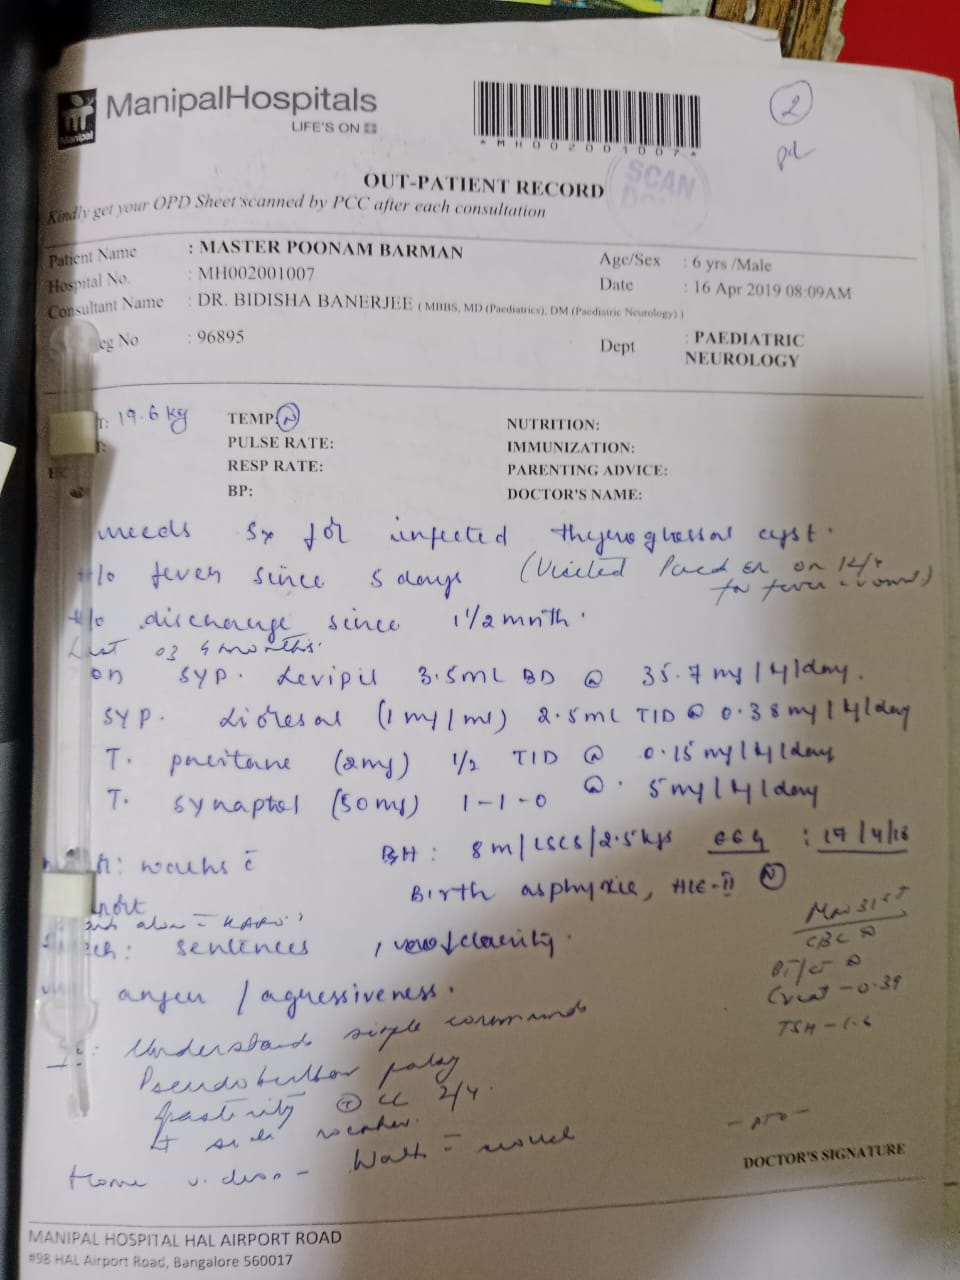 ManipalHospitals
LIFE'S ON
Manipal
*MH002001007*
2
SCAN
OUT-PATIENT RECORD
Kindly get your OPD Sheet scanned by PCC after each consultation
Patient Name : MASTER POONAM BARMAN
Age/Sex : 6 yrs /Male
Hospital No. : MH002001007
Date : 16 Apr 2019 08:09AM
Consultant Name : DR. BIDISHA BANERJEE ( MBBS, MD (Paediatrics), DM (Paediatric Neurology) )
eg No : 96895
Dept : PAEDIATRIC NEUROLOGY
T: 19.6 kg TEMP: N NUTRITION:
PULSE RATE: IMMUNIZATION:
RESP RATE: PARENTING ADVICE:
BP: DOCTOR'S NAME:
needs sx for infected thyroglossal cyst.
H/o fever since 5 days (Visited Paed ER on 14/4
for fever
H/o discharge since 1 1/2 month.
Last 03 4 months.
on SYP. Levipil 3.5ML BD @ 35.7 mg/kg/day.
SYP. Lioresal (1mg/ml) 2.5ML TID @ 0.38 mg/kg/day
T. pacitane (2mg) 1/2 TID @ 0.15 mg/kg/day
T. synaptol (50mg) 1-1-0 @ 5mg/kg/day
walks c̄ BH: 8m/LSCS/2.5kgs EEG : 17/4/18
Birth asphyxia, HIE-II N
CBC N
sentences, clarity.
BT/CT N
anger / agressiveness.
Creat - 0.39
TSH - 1.6
Understands simple commands
Pseudobulbar palsy
Spasticity ⊕ LL 2/4.
Home video - Walk
DOCTOR'S SIGNATURE
MANIPAL HOSPITAL HAL AIRPORT ROAD
#98 HAL Airport Road, Bangalore 560017